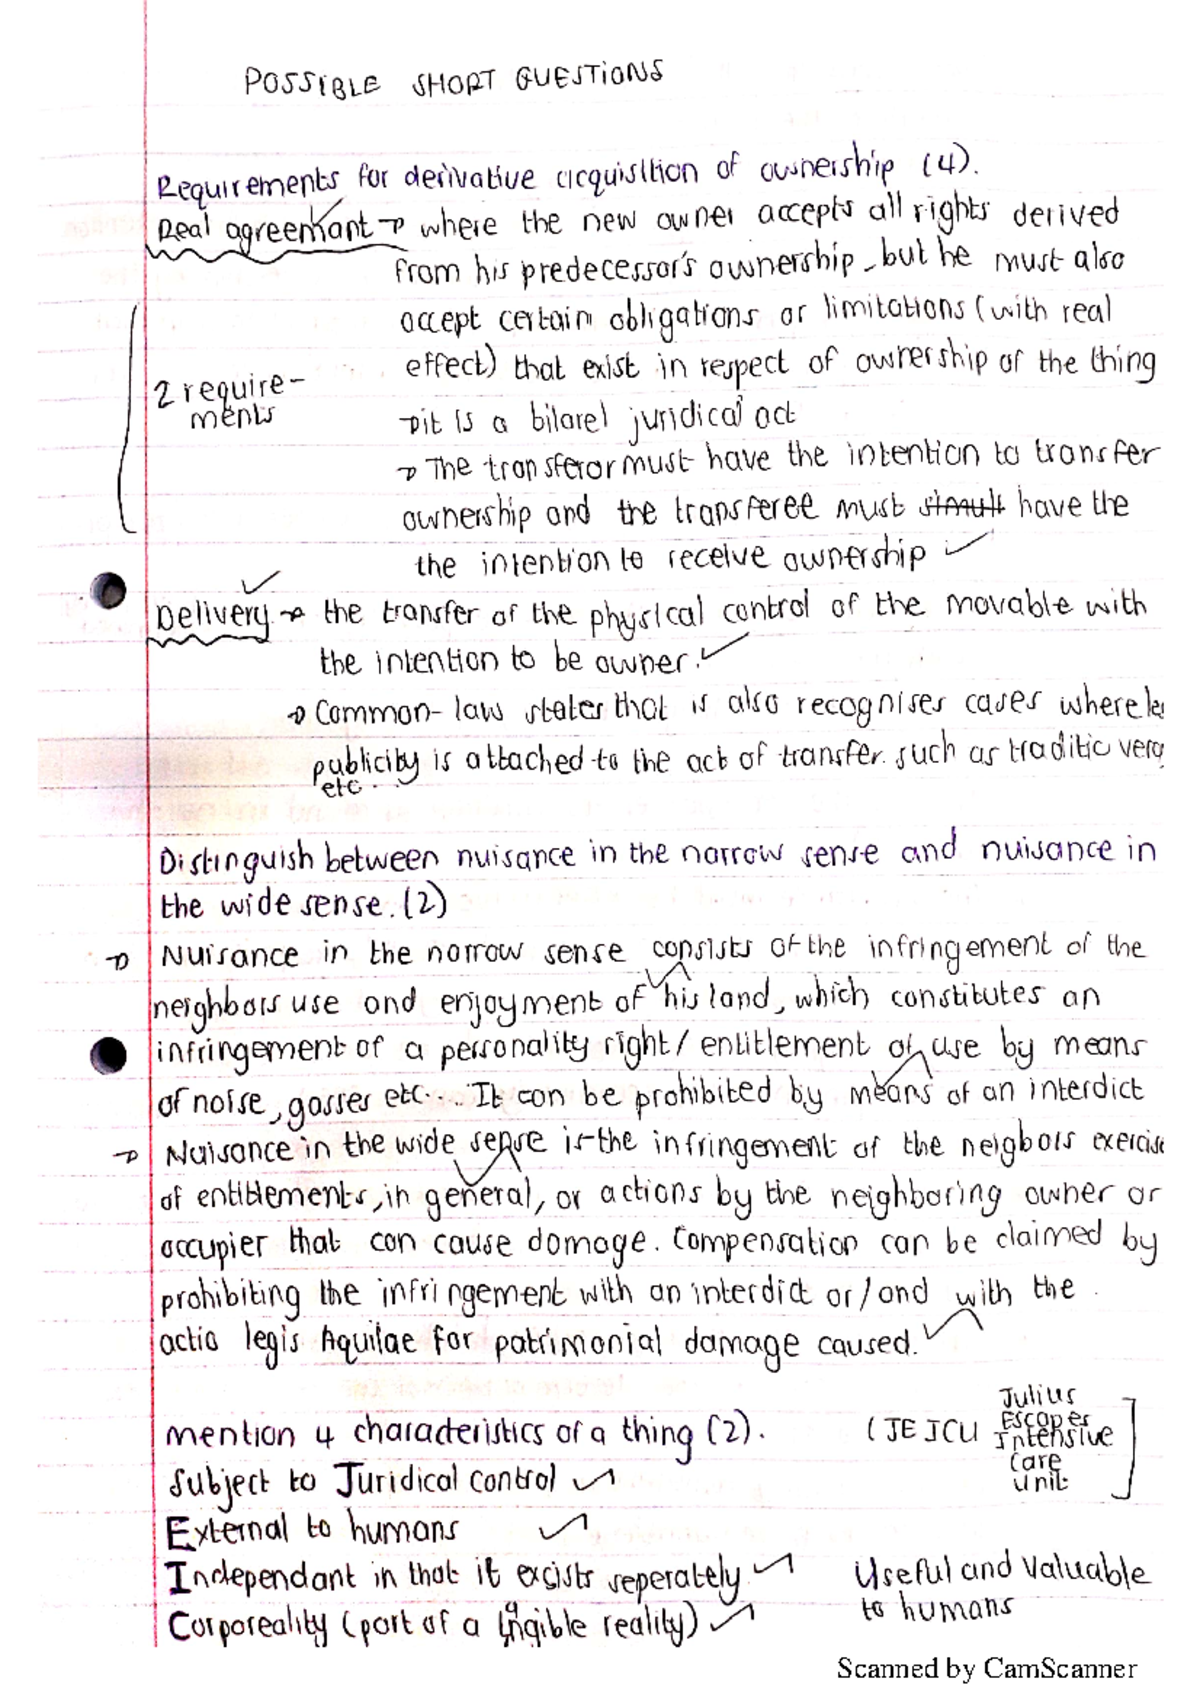 POSSIBLE SHORT QUESTIONS
Requirements for derivative acquisition of ownership (4).
Real agreemant → where the new owner accepts all rights derived
from his predecessor's ownership, but he must also
accept certain obligations or limitations (with real
effect) that exist in respect of ownership of the thing
2 require-
ments
→ it is a bilarel juridical act
→ The transferor must have the intention to transfer
ownership and the transferee must have the
the intention to receive ownership ✓
Delivery → the transfer of the physical control of the movable with
the intention to be owner. ✓
→ Common-law states that is also recognises cases where
publicity is attached to the act of transfer. such as traditic vera
etc...
Distinguish between nuisance in the narrow sense and nuisance in
the wide sense. (2)
→ Nuisance in the narrow sense consists of the infringement of the
neighbors use and enjoyment of his land, which constitutes an
infringement of a personality right / entitlement of use by means
of noise, gasses etc... It can be prohibited by means of an interdict
→ Nuisance in the wide sense is the infringement of the neigbors exercise
of entitlements, in general, or actions by the neighboring owner or
occupier that can cause damage. Compensation can be claimed by
prohibiting the infringement with an interdict or/and with the
actio legis Aquilae for patrimonial damage caused. ✓
mention 4 characteristics of a thing (2). (JEICU
Julius
Escapes
Intensive
Care
Unit
Subject to Juridical control ✓
External to humans ✓
Independant in that it excists seperately ✓
Corporeality (part of a tangible reality) ✓
Useful and Valuable
to humans
Scanned by CamScanner